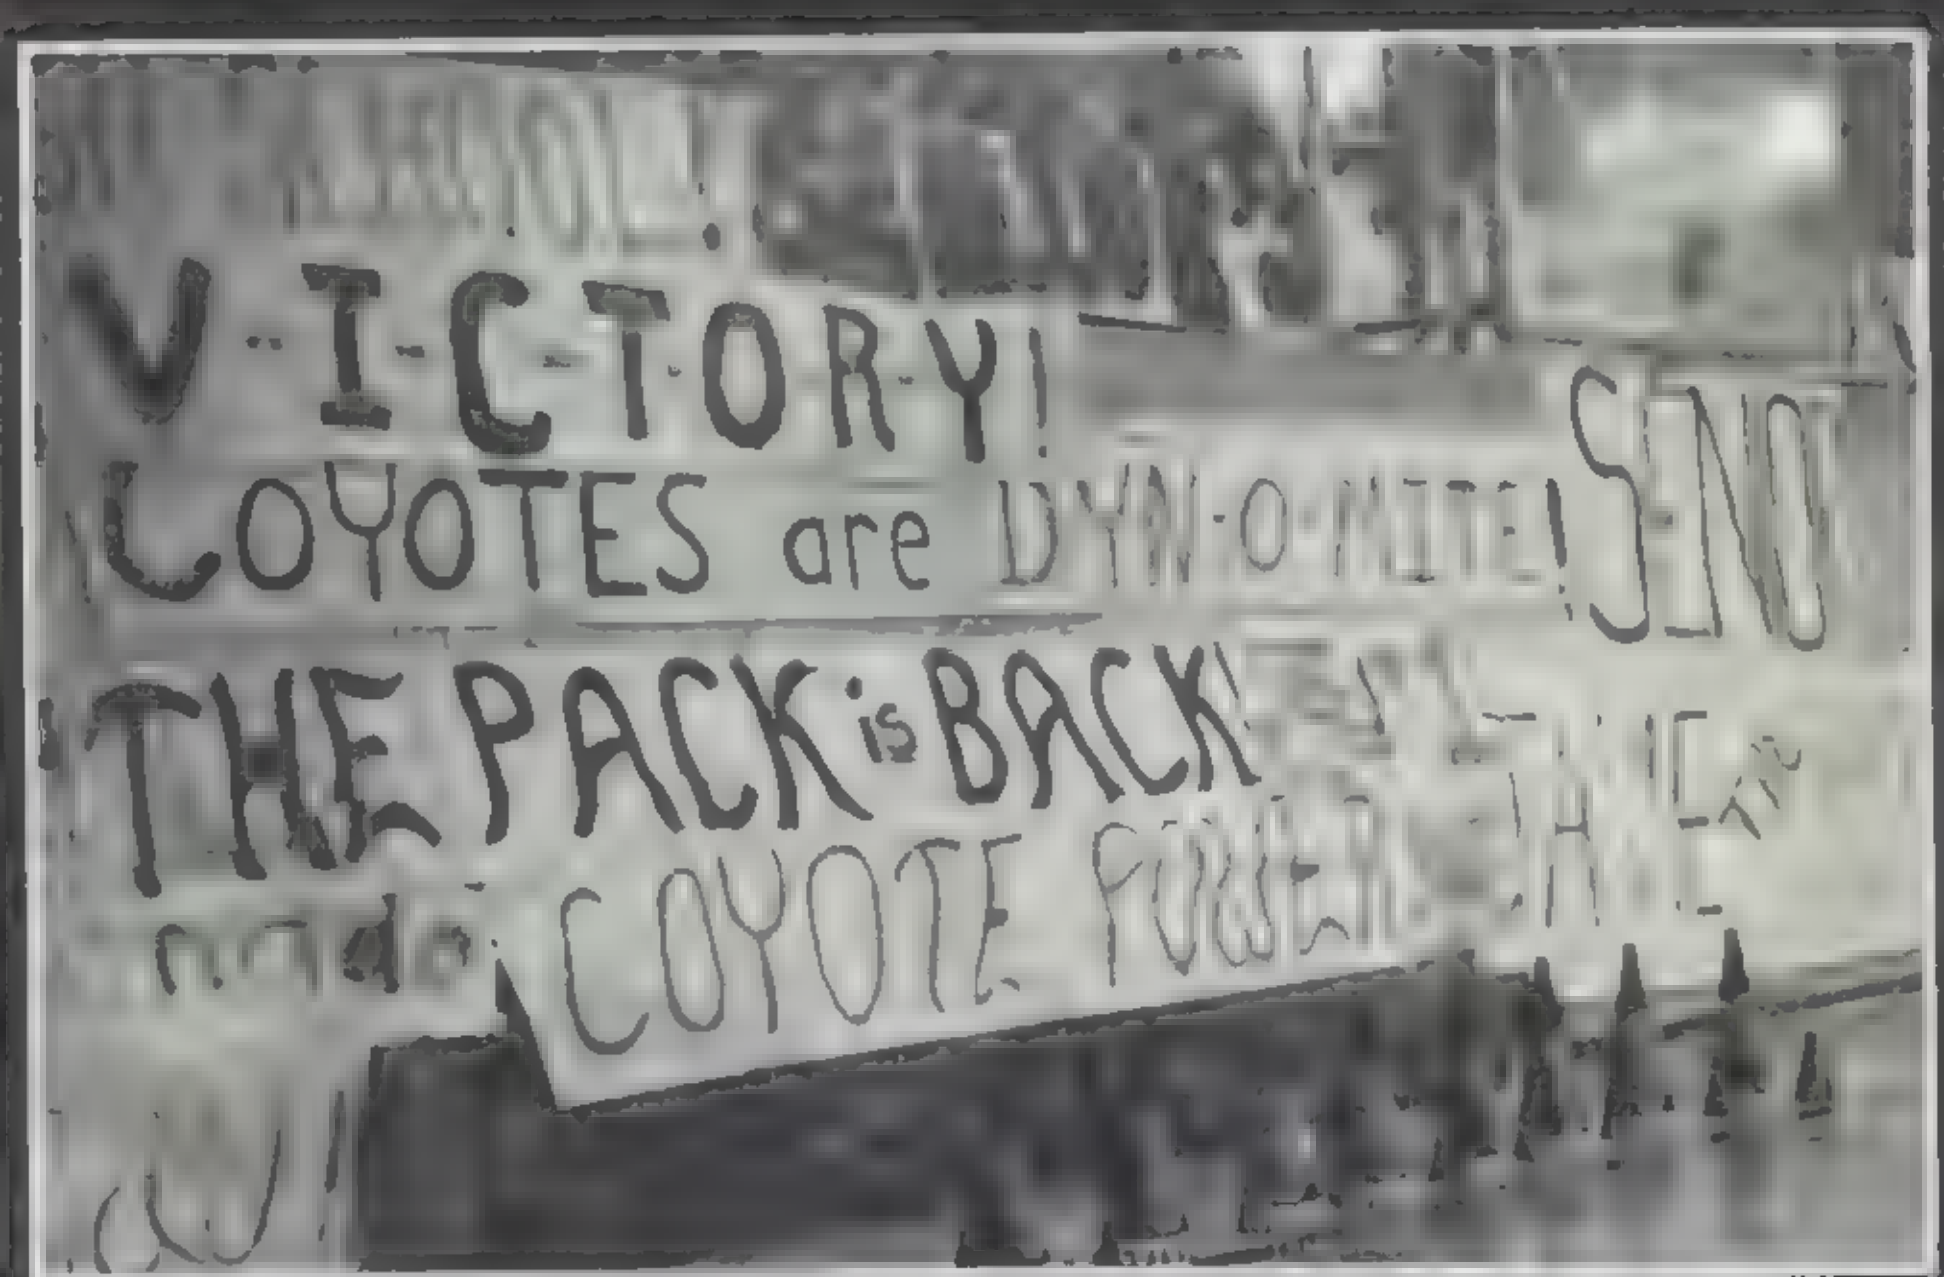 V-I-C-T-O-R-Y!
COYOTES are DYN-O-MITE!
THE PACK is BACK!
COYOTE POWER
THE